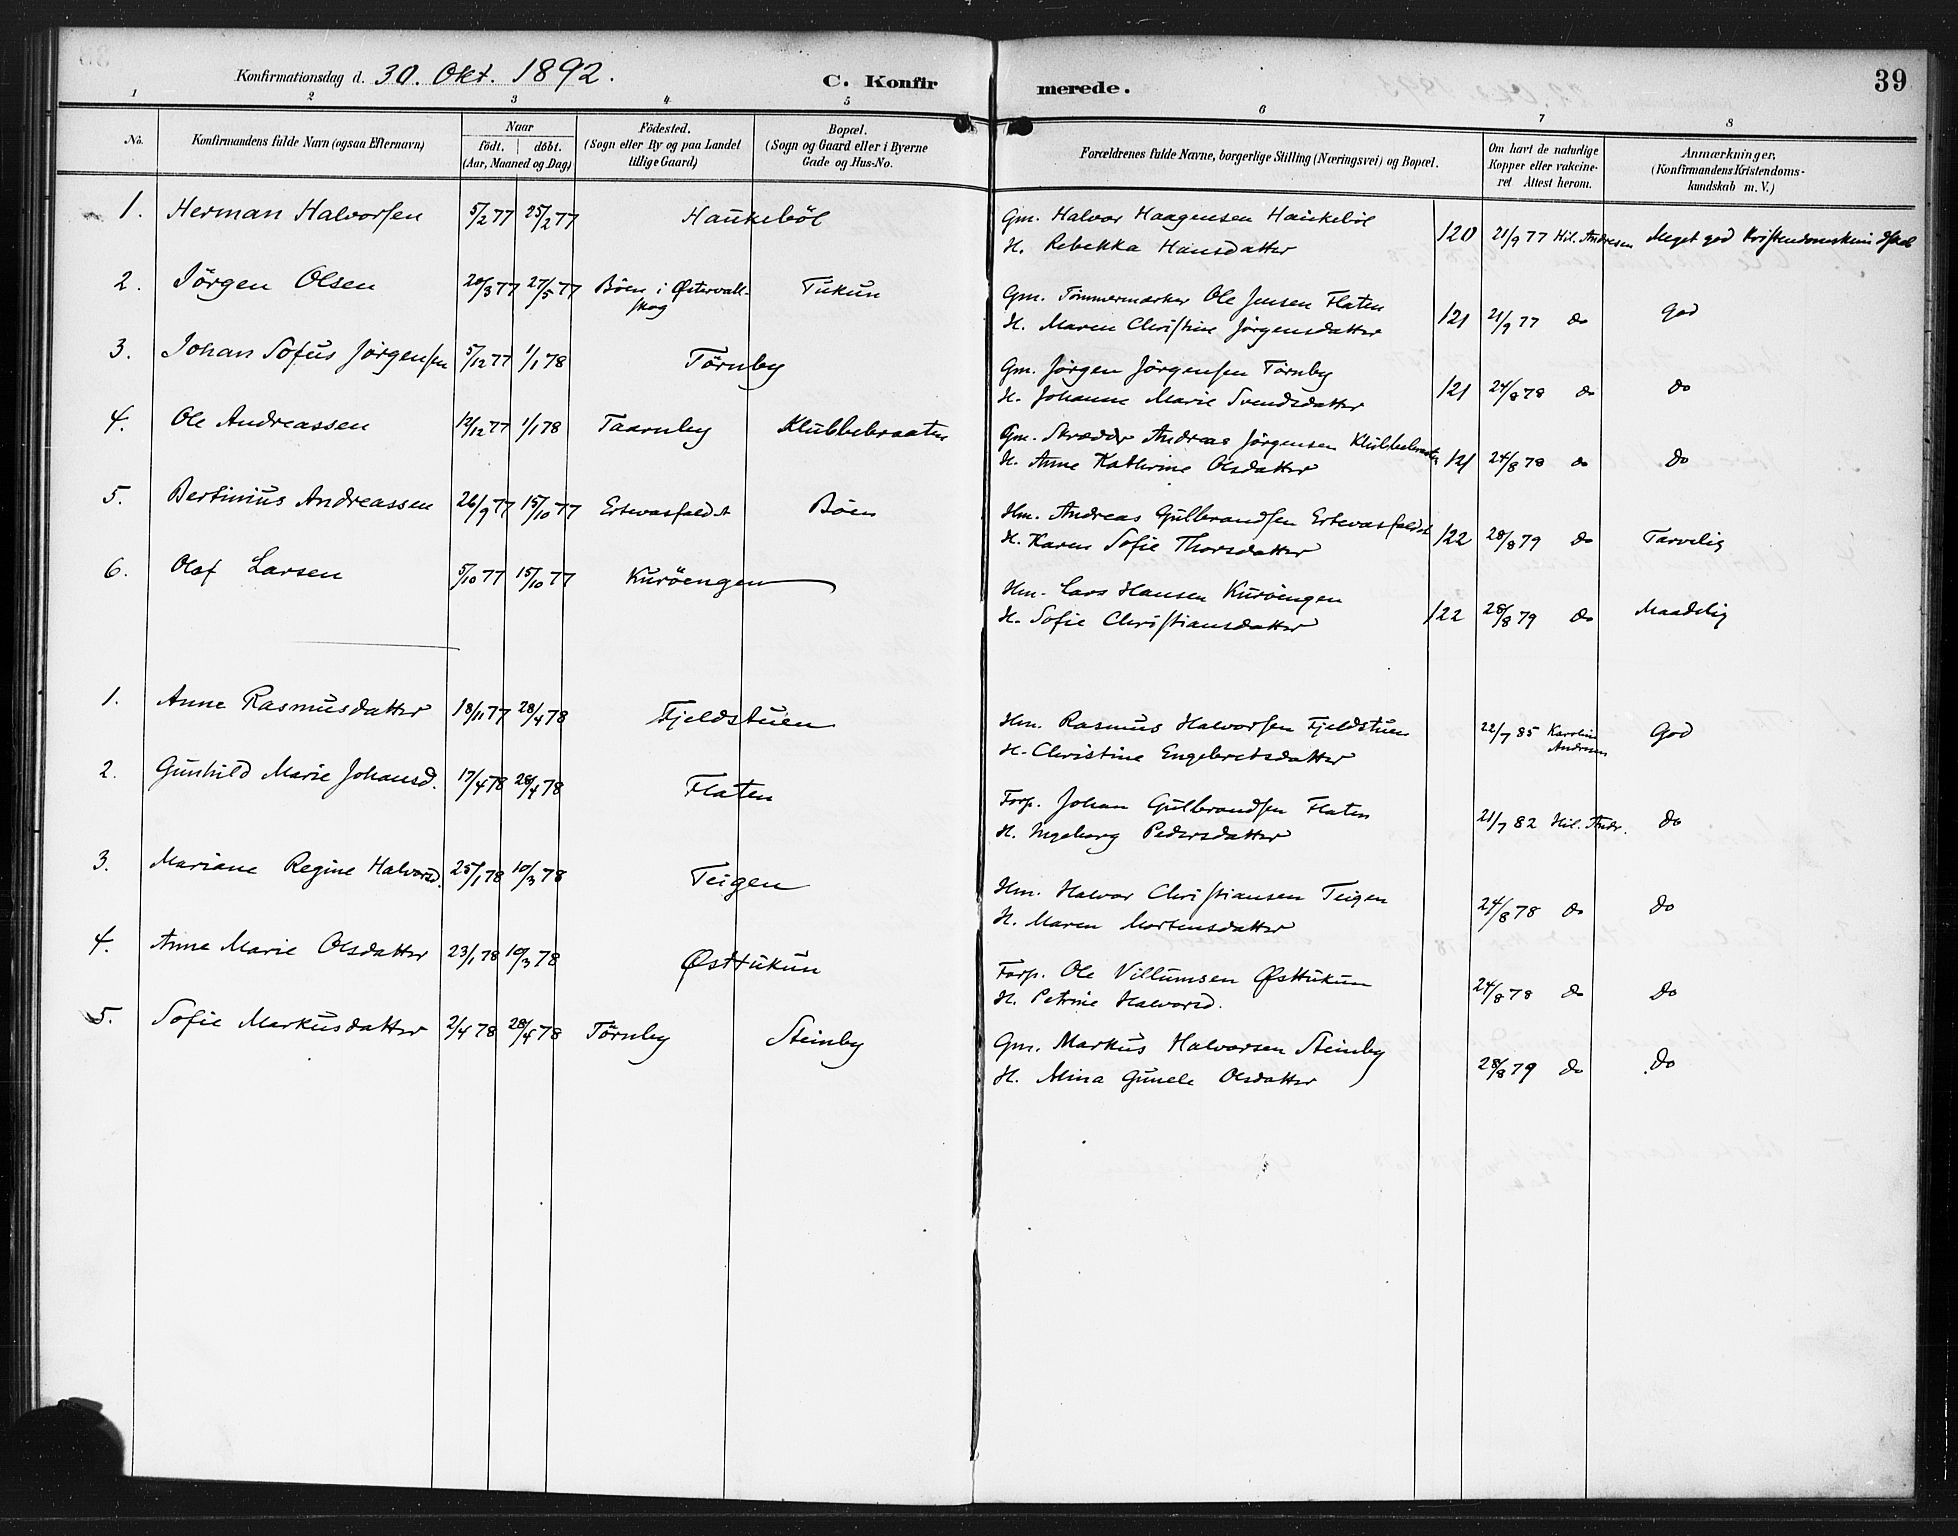 Konfirmationsdag d. 30. Okt. 1892. C. Konfirmerede. 39
1 2 3 4 5 6 7 8
No. Konfirmandens fulde Navn (ogsaa Efternavn) Naar födt. döbt. (Aar, Maaned og Dag) Födested. (Sogn eller By og paa Landet tillige Gaard) Bopæl. (Sogn og Gaard eller i Byerne Gade og Hus-No. Forældrenes fulde Navne, borgerlige Stilling (Næringsvei) og Bopæl. Om havt de naturlige Kopper eller vakcineret Attest herom. Anmærkninger, (Konfirmandens Kristendomskundskab m. V.)
1. Herman Halvorsen 5/2 77 25/2 77 Haukeböl Gm. Halvor Haagensen Haukeböl 120 21/9 77 Hil. Andresen Meget god
H. Rebekka Hansdatter
2. Jörgen Olsen 20/3 77 27/5 77 Böen i Østervallskog Tukun Gm. Tömmermærker Ole Jensen Flaten 121 21/9 77 do God
H. Maren Christine Jörgensdatter
3. Johan Sofus Jörgensen 5/12 77 1/1 78 Törnby Gm. Jörgen Jörgensen Törnby 121 24/8 78 do do
H. Johanne Marie Svendsdatter
4. Ole Andreassen 12/12 77 1/1 78 Taarnby Klubbebraaten Gm. Skrædder Andreas Jörgensen Klubbebraaten 121 24/8 78 do do
H. Anne Kathrine Olsdatter
5. Bertinius Andreassen 26/9 77 15/10 77 Ertevasfaldet Böen Hm. Andreas Gulbrandsen Ertevasfaldet 122 28/8 79 do Tarvelig
H. Karen Sofie Thorsdatter
6. Olaf Larsen 5/10 77 15/10 77 Kuröengen Hm. Lars Hansen Kuröengen 122 28/8 79 do Maadelig
H. Sofie Christiansdatter
1. Anne Rasmusdatter 18/11 77 28/4 78 Fjeldstuen Hm. Rasmus Halvorsen Fjeldstuen 22/7 85 Karoline Andresen God
H. Christine Engebretsdatter
2. Gunhild Marie Johansd. 17/4 78 28/4 78 Flaten Forp. Johan Gulbrandsen Flaten 21/7 82 Hil. Andr. do
H. Ingeborg Pedersdatter
3. Mariane Regine Halvorsd. 25/1 78 10/3 78 Teigen Hm. Halvor Christiansen Teigen 24/8 78 do do
H. Maren Mortensdatter
4. Anne Marie Olsdatter 23/1 78 10/3 78 Østtukun Forp. Ole Villumsen Østtukun 24/8 78 do do
H. Petrine Halvorsd.
5. Sofie Markusdatter 2/4 78 28/4 78 Törnby Steinby Gm. Markus Halvorsen Steinby 28/8 79 do do
H. Mina Gunele Olsdatter